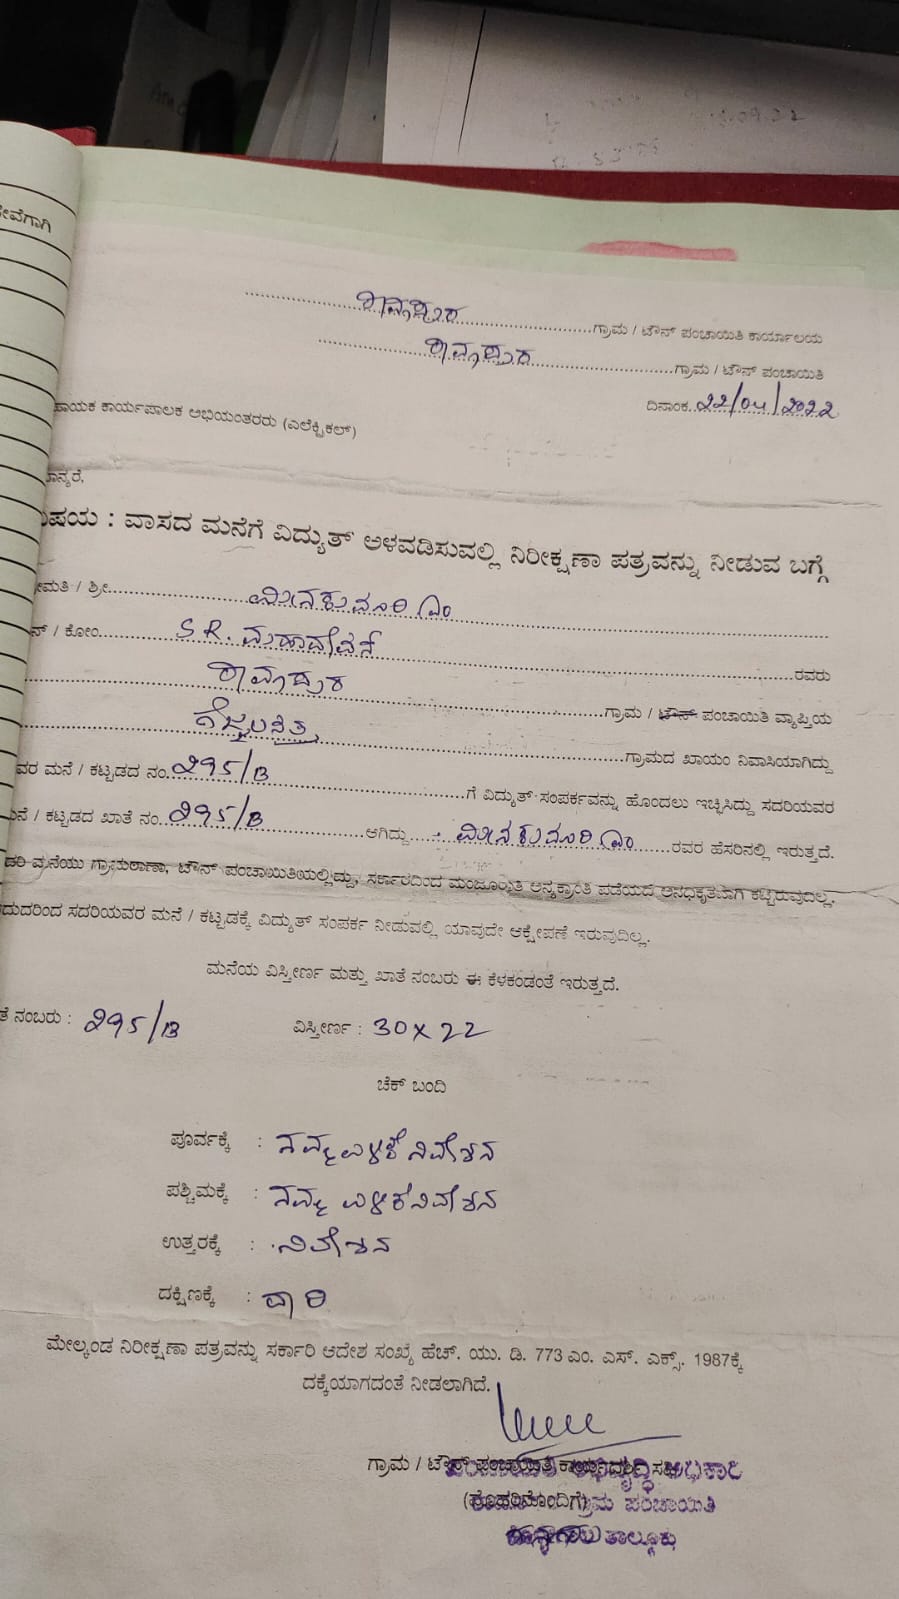 ಸೇವೆಗಾಗಿ
ಗ್ರಾಮ / ಟೌನ್ ಪಂಚಾಯಿತಿ ಕಾರ್ಯಾಲಯ
ಗ್ರಾಮ / ಟೌನ್ ಪಂಚಾಯಿತಿ
ದಿನಾಂಕ. 22/04/2022
ಹಾಯಕ ಕಾರ್ಯಪಾಲಕ ಅಭಿಯಂತರರು (ಎಲೆಕ್ಟ್ರಿಕಲ್)
ಮಾನ್ಯರೆ,
ವಿಷಯ : ವಾಸದ ಮನೆಗೆ ವಿದ್ಯುತ್ ಅಳವಡಿಸುವಲ್ಲಿ ನಿರೀಕ್ಷಣಾ ಪತ್ರವನ್ನು ನೀಡುವ ಬಗ್ಗೆ
ೀಮತಿ / ಶ್ರೀ. ಮೀನಕುಮಾರಿ ಎಂ
ನ್ / ಕೋಂ. S.R. ಮಹಾದೇವನ್ ರವರು
ಗ್ರಾಮ / ಟೌನ್ ಪಂಚಾಯಿತಿ ವ್ಯಾಪ್ತಿಯ
ಗ್ರಾಮದ ಖಾಯಂ ನಿವಾಸಿಯಾಗಿದ್ದು
ವರ ಮನೆ / ಕಟ್ಟಡದ ನಂ. 295/B ಗೆ ವಿದ್ಯುತ್ ಸಂಪರ್ಕವನ್ನು ಹೊಂದಲು ಇಚ್ಛಿಸಿದ್ದು ಸದರಿಯವರ
ಮನೆ / ಕಟ್ಟಡದ ಖಾತೆ ನಂ. 295/B ಆಗಿದ್ದು ಮೀನಕುಮಾರಿ ಎಂ ರವರ ಹೆಸರಿನಲ್ಲಿ ಇರುತ್ತದೆ.
ದರಿ ಮನೆಯು ಗ್ರಾಮಠಾಣಾ, ಟೌನ್ ಪಂಚಾಯಿತಿಯಲ್ಲಿದ್ದು, ಸರ್ಕಾರದಿಂದ ಮಂಜೂರಾತಿ ಅನ್ಯಕ್ರಾಂತಿ ಪಡೆಯದೆ ಅನಧಿಕೃತವಾಗಿ ಕಟ್ಟಿರುವುದಿಲ್ಲ.
ದುದರಿಂದ ಸದರಿಯವರ ಮನೆ / ಕಟ್ಟಡಕ್ಕೆ ವಿದ್ಯುತ್ ಸಂಪರ್ಕ ನೀಡುವಲ್ಲಿ ಯಾವುದೇ ಆಕ್ಷೇಪಣೆ ಇರುವುದಿಲ್ಲ.
ಮನೆಯ ವಿಸ್ತೀರ್ಣ ಮತ್ತು ಖಾತೆ ನಂಬರು ಈ ಕೆಳಕಂಡಂತೆ ಇರುತ್ತದೆ.
ತೆ ನಂಬರು : 295/B ವಿಸ್ತೀರ್ಣ : 30 x 22
ಚೆಕ್ ಬಂದಿ
ಪೂರ್ವಕ್ಕೆ : ನಿವೇಶನ
ಪಶ್ಚಿಮಕ್ಕೆ : ನಿವೇಶನ
ಉತ್ತರಕ್ಕೆ : ನಿವೇಶನ
ದಕ್ಷಿಣಕ್ಕೆ :
ಮೇಲ್ಕಂಡ ನಿರೀಕ್ಷಣಾ ಪತ್ರವನ್ನು ಸರ್ಕಾರಿ ಆದೇಶ ಸಂಖ್ಯೆ ಹೆಚ್. ಯು. ಡಿ. 773 ಎಂ. ಎಸ್. ಎಕ್ಸ್. 1987ಕ್ಕೆ
ದಕ್ಕೆಯಾಗದಂತೆ ನೀಡಲಾಗಿದೆ.
ಗ್ರಾಮ / ಟೌನ್ ಪಂಚಾಯಿತಿ ಕಾರ್ಯದರ್ಶಿ ಸಹಿ
(ಮೊಹರಿನೊಂದಿಗೆ)
ಗ್ರಾಮ ಪಂಚಾಯಿತಿ
ತಾಲ್ಲೂಕು